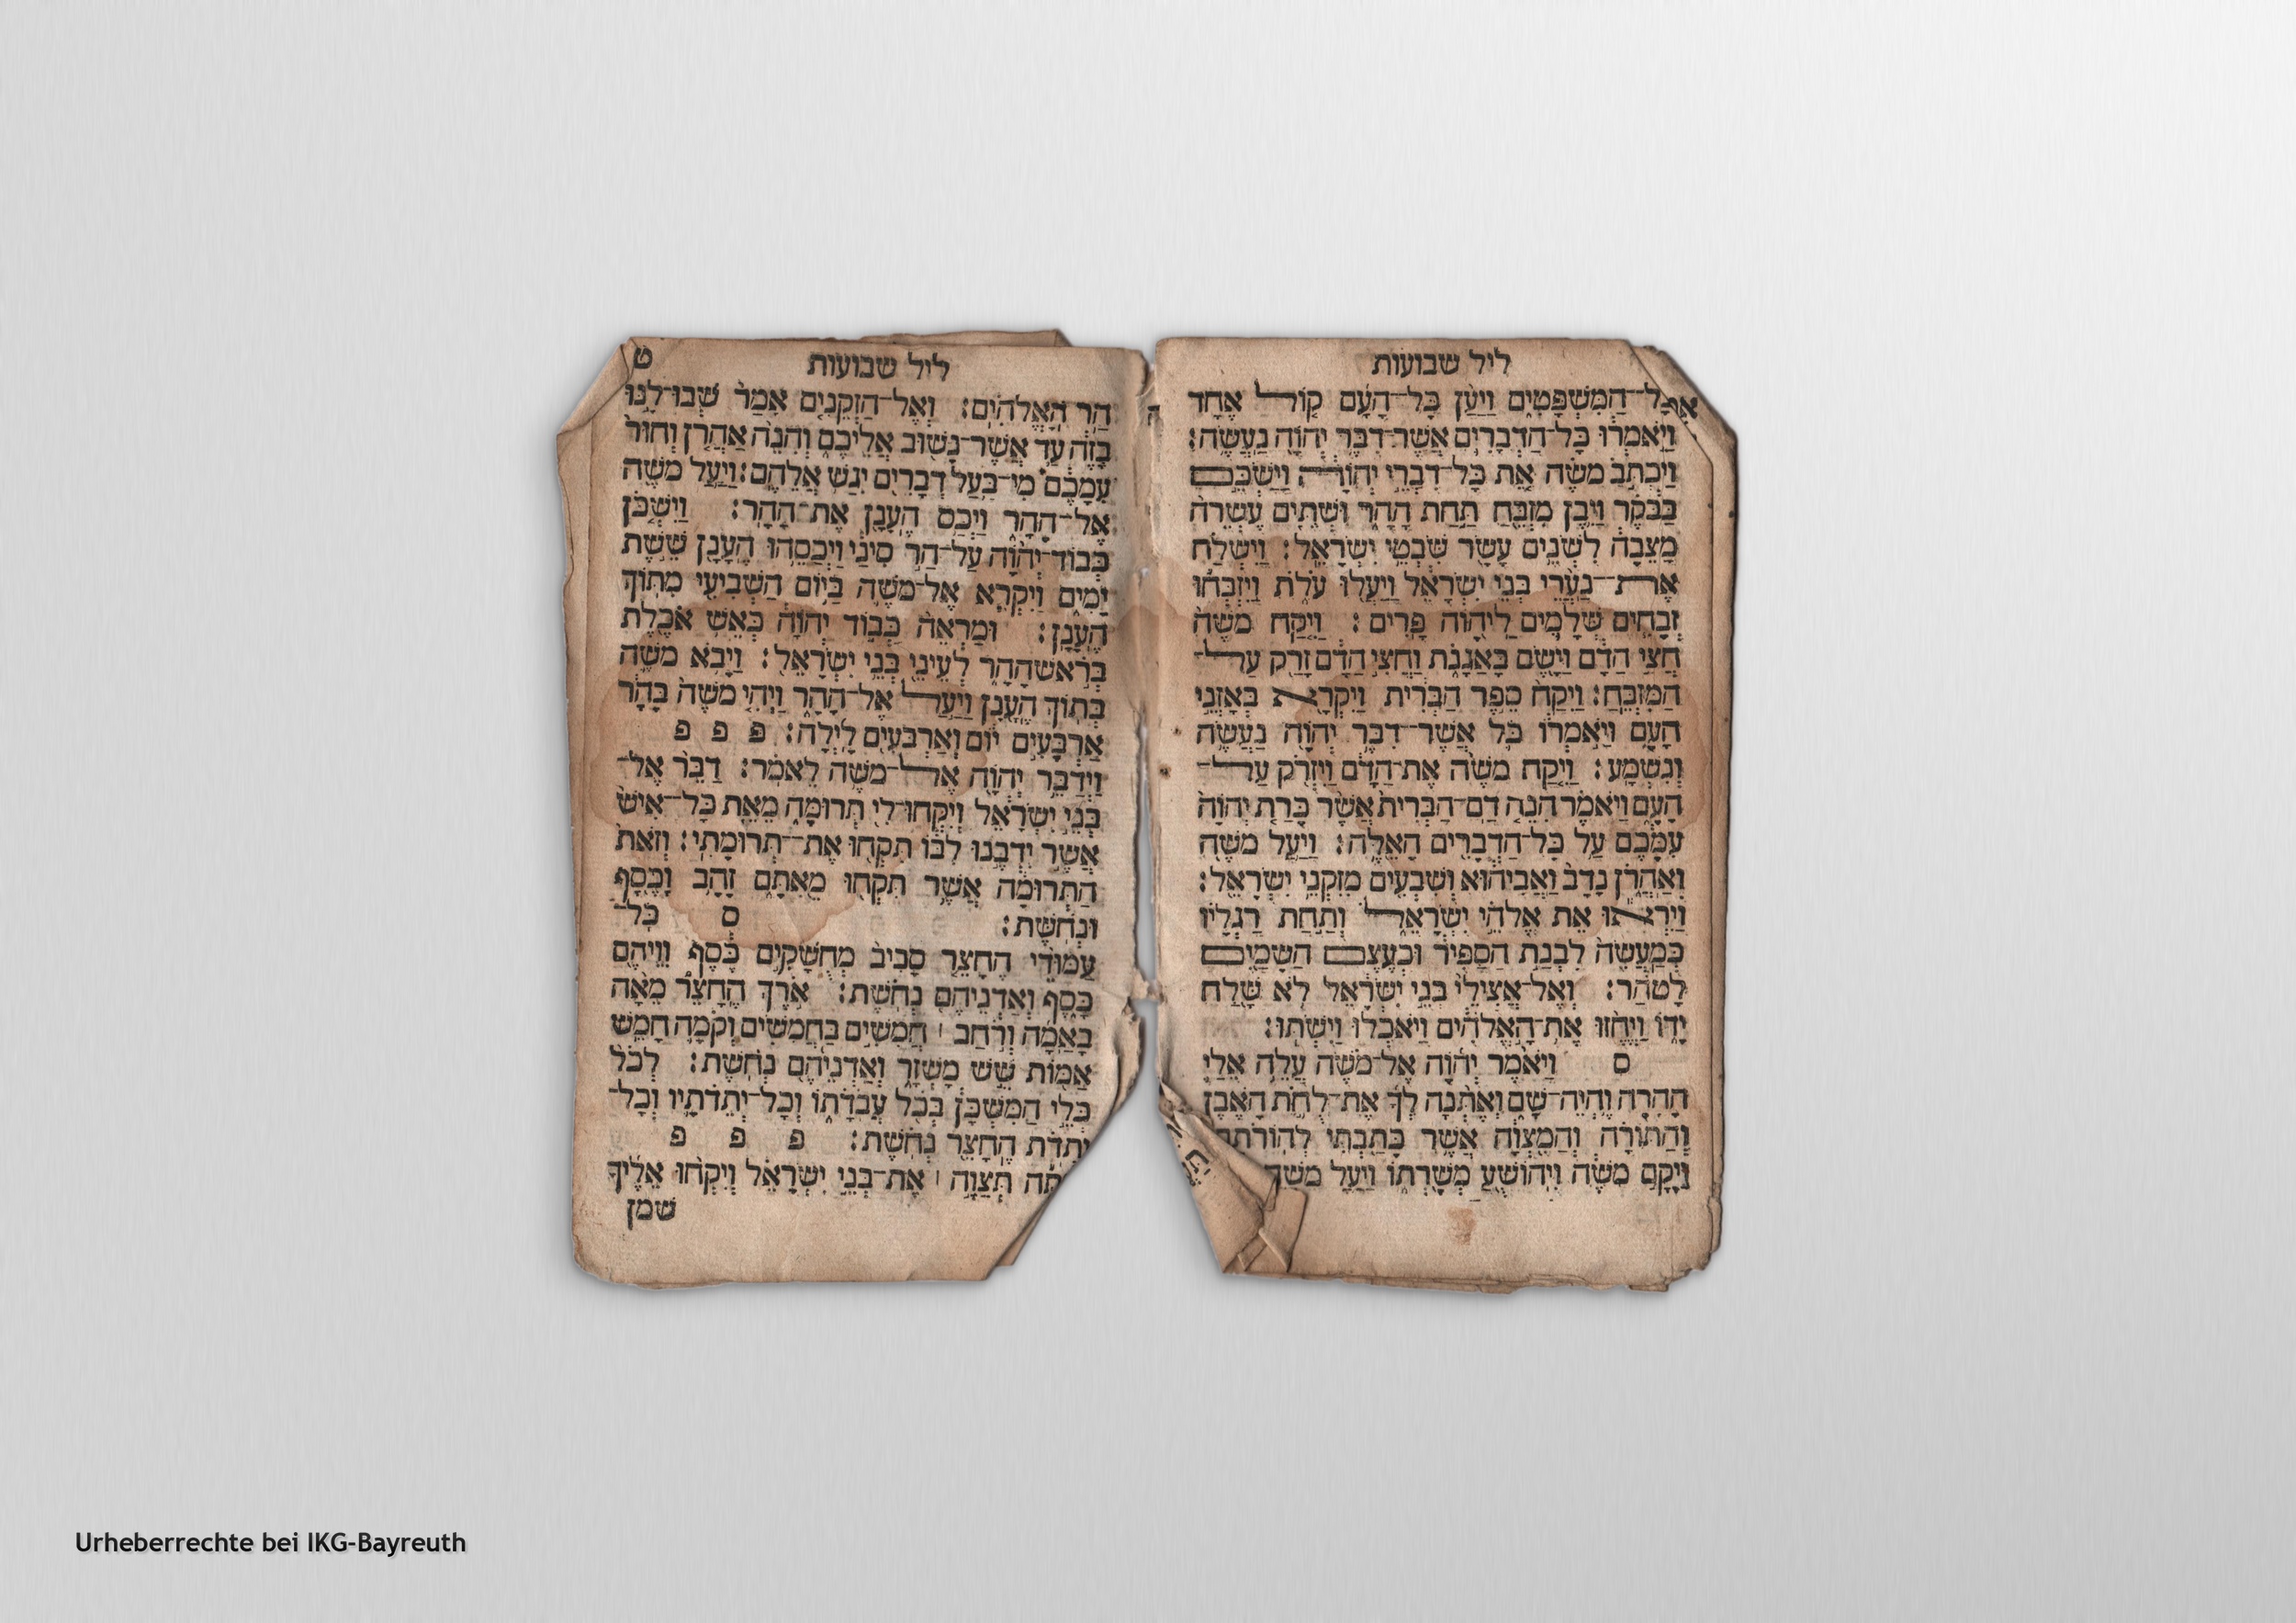 ליל שבועות
המשפטים ויען כל־העם קול אחד
ויאמרו כל־הדברים אשר־דבר יהוה נעשה׃
ויכתב משה את כל־דברי יהוה וישכם
בבקר ויבן מזבח תחת ההר ושתים עשרה
מצבה לשנים עשר שבטי ישראל׃ וישלח
את־נערי בני ישראל ויעלו עלת ויזבחו
זבחים שלמים ליהוה פרים׃ ויקח משה
חצי הדם וישם באגנת וחצי הדם זרק על־
המזבח׃ ויקח ספר הברית ויקרא באזני
העם ויאמרו כל אשר־דבר יהוה נעשה
ונשמע׃ ויקח משה את־הדם ויזרק על־
העם ויאמר הנה דם־הברית אשר כרת יהוה
עמכם על כל־הדברים האלה׃ ויעל משה
ואהרן נדב ואביהוא ושבעים מזקני ישראל׃
ויראו את אלהי ישראל ותחת רגליו
כמעשה לבנת הספיר וכעצם השמים
לטהר׃ ואל־אצילי בני ישראל לא שלח
ידו ויחזו את־האלהים ויאכלו וישתו׃
ס ויאמר יהוה אל־משה עלה אלי
ההרה והיה־שם ואתנה לך את־לחת האבן
והתורה והמצוה אשר כתבתי
ויקם משה ויהושע משרתו ויעל משה
ליל שבועות ט
הר האלהים׃ ואל־הזקנים אמר שבו־לנו
בזה עד אשר־נשוב אליכם והנה אהרן וחור
עמכם מי־בעל דברים יגש אלהם׃ ויעל משה
אל־ההר ויכס הענן את־ההר׃ וישכן
כבוד־יהוה על־הר סיני ויכסהו הענן ששת
ימים ויקרא אל־משה ביום השביעי מתוך
הענן׃ ומראה כבוד יהוה כאש אכלת
בראש ההר לעיני בני ישראל׃ ויבא משה
בתוך הענן ויעל אל־ההר ויהי משה בהר
ארבעים יום וארבעים לילה׃ פ פ פ
וידבר יהוה אל־משה לאמר׃ דבר אל־
בני ישראל ויקחו־לי תרומה מאת כל־איש
אשר ידבנו לבו תקחו את־תרומתי׃ וזאת
התרומה אשר תקחו מאתם זהב וכסף
ונחשת׃ ס כל־
עמודי החצר סביב מחשקים כסף וויהם
כסף ואדניהם נחשת׃ ארך החצר מאה
באמה ורחב ׀ חמשים בחמשים וקמה חמש
אמות שש משזר ואדניהם נחשת׃ לכל
כלי המשכן בכל עבדתו וכל־יתדתיו וכל־
יתדת החצר נחשת׃ פ פ פ
תצוה ׀ את־בני ישראל ויקחו אליך
שמן
Urheberrechte bei IKG-Bayreuth